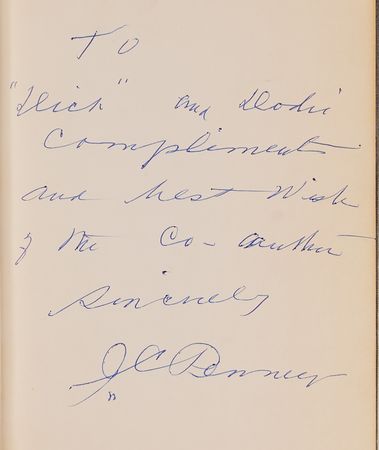 To
"Dick" and Dodie
Compliments
and best Wish
of the co-author
Sincerely
J C Penney